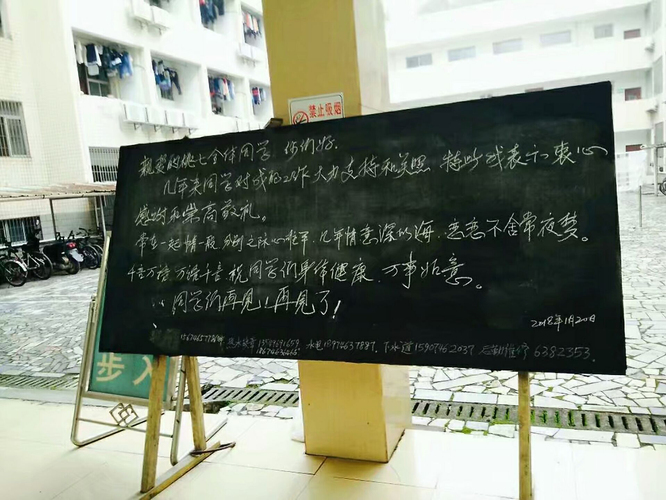 禁止吸烟
亲爱的德七全体同学 你们好.
几年来同学对我的工作大力支持和关照 特此我表示衷心
感谢和崇高敬礼。
常在一起情一般, 分别之际心难平, 几年情意深似海, 恋恋不舍常夜梦。
千言万语 万语千言 祝同学们身体健康、万事如意。
同学们再见、再见了!
2018年1月20日
热水 水电13974637887. 下水道15907462037 后勤维修 6382353.
步入